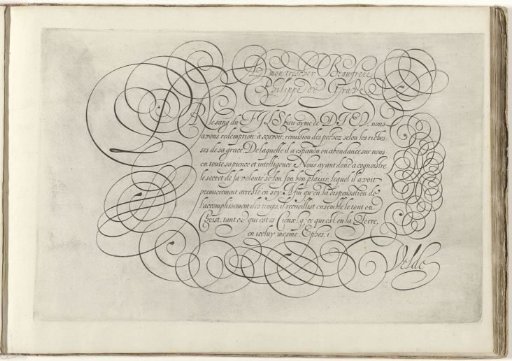 A mon trescher Beaufrere
Philippe de
Par le sang du FILS unique de DIEU, nous
avons redemption, à savoir, remission des pechez, selon les riches-
ses de sa grace: De laquelle il a foisonné en abondance sur nous
en toute sapience et intelligence: Nous ayant donné a cognoistre
le secret de sa volonté selon son bon plaisir, lequel il avoit
premierement arresté en soy: A fin qu'en la dispensation de
l'accomplissement des temps, il recueillist ensemble le tout en
Christ, tant ce qui est és Cieux, que ce qui est en la Terre,
en iceluy mesme. Ephes. 1.